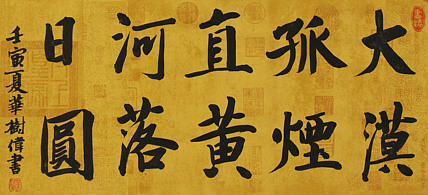 大漠
孤煙
直黃
河落
日圓
壬寅夏華樹偉書